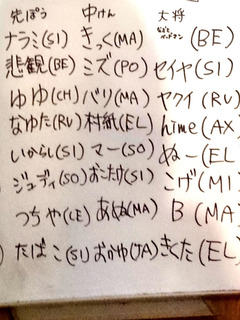 先ぽう 中けん 大将
ナラミ(SI) きっく(MA) (BE)
悲観(BE) ミズ(PO) セイヤ(SI)
ゆゆ(CH) バリ(MA) ヤクイ(RU)
なゆた(RU) 村紙(EL) hime(AX)
いからし(SI) マー(SO) ぬー(EL
ジュディ(SO) おこたけ(SI) こげ(MI
つちや(LE) あぬ(MA) B(MA
たばこ(SI) おかゆ(JA) きくた(EL)